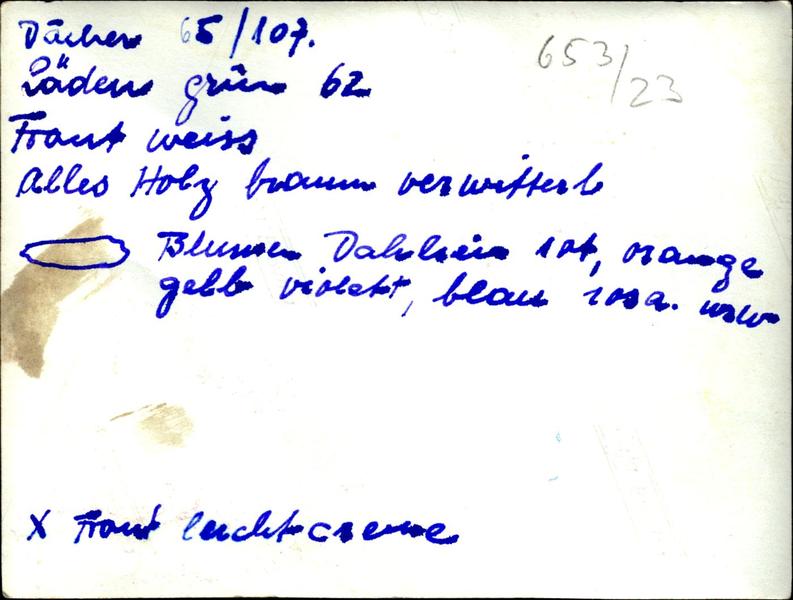 Dächer 65/107.
653/23
Läden grün 62
Front weiss
Alles Holz braun verwittert
Blumen Dahlien rot, orange
gelb violett, blau rosa. usw
X Front leichtcreme